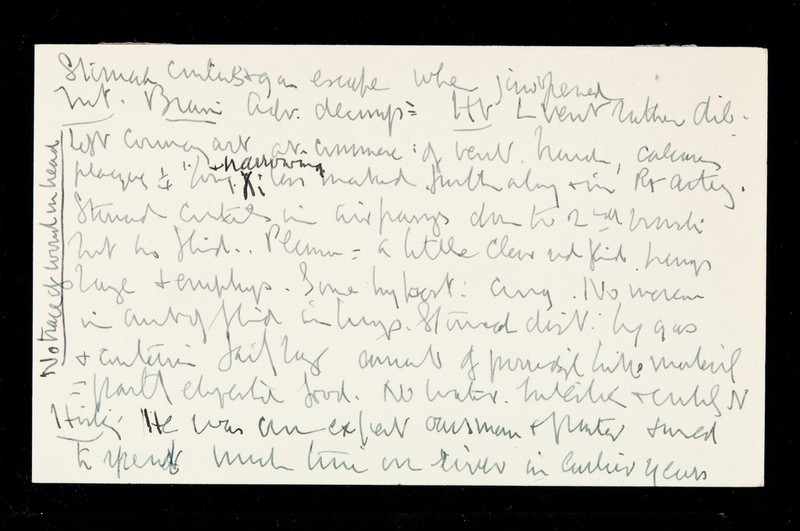 Stomach contents & gas escape when jaw opened
Int. Brain adv. decomp = Ht L vent rather dil.
Left coronary art. at commenc: of vent. branch, calcareous
plaque ¼" long & narrowing X; less marked further along & in Rt artery.
Stomach contents in air passages down to 2nd bronchi
but no fluid. Pleura = a little clear red fluid. Lungs
large & emphys. Some hypost: cong. No increase
in amt of fluid in lungs. Stomach dist: by gas
& contains fairly large amount of porridge like material
= partly digested food. No water. &
Hist: He was an expert oarsman & & used
to spend much time on river in earlier years
No trace of wound in head